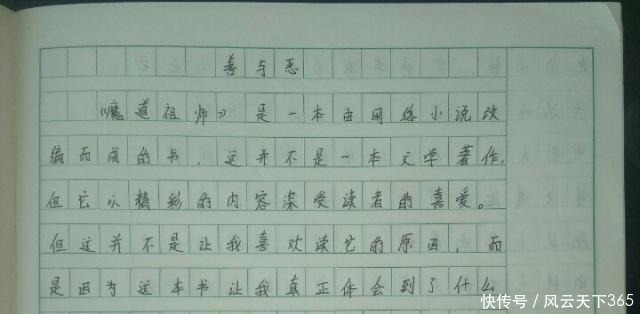 善与恶
《魔道祖师》是一本由网络小说改
编而成的书，这并不是一本文学著作，
但它以精彩的内容深受读者的喜爱。
但这并不是让我喜欢读它的原因，而
是因为这本书让我真正体会到了什么
快传号／风云天下365